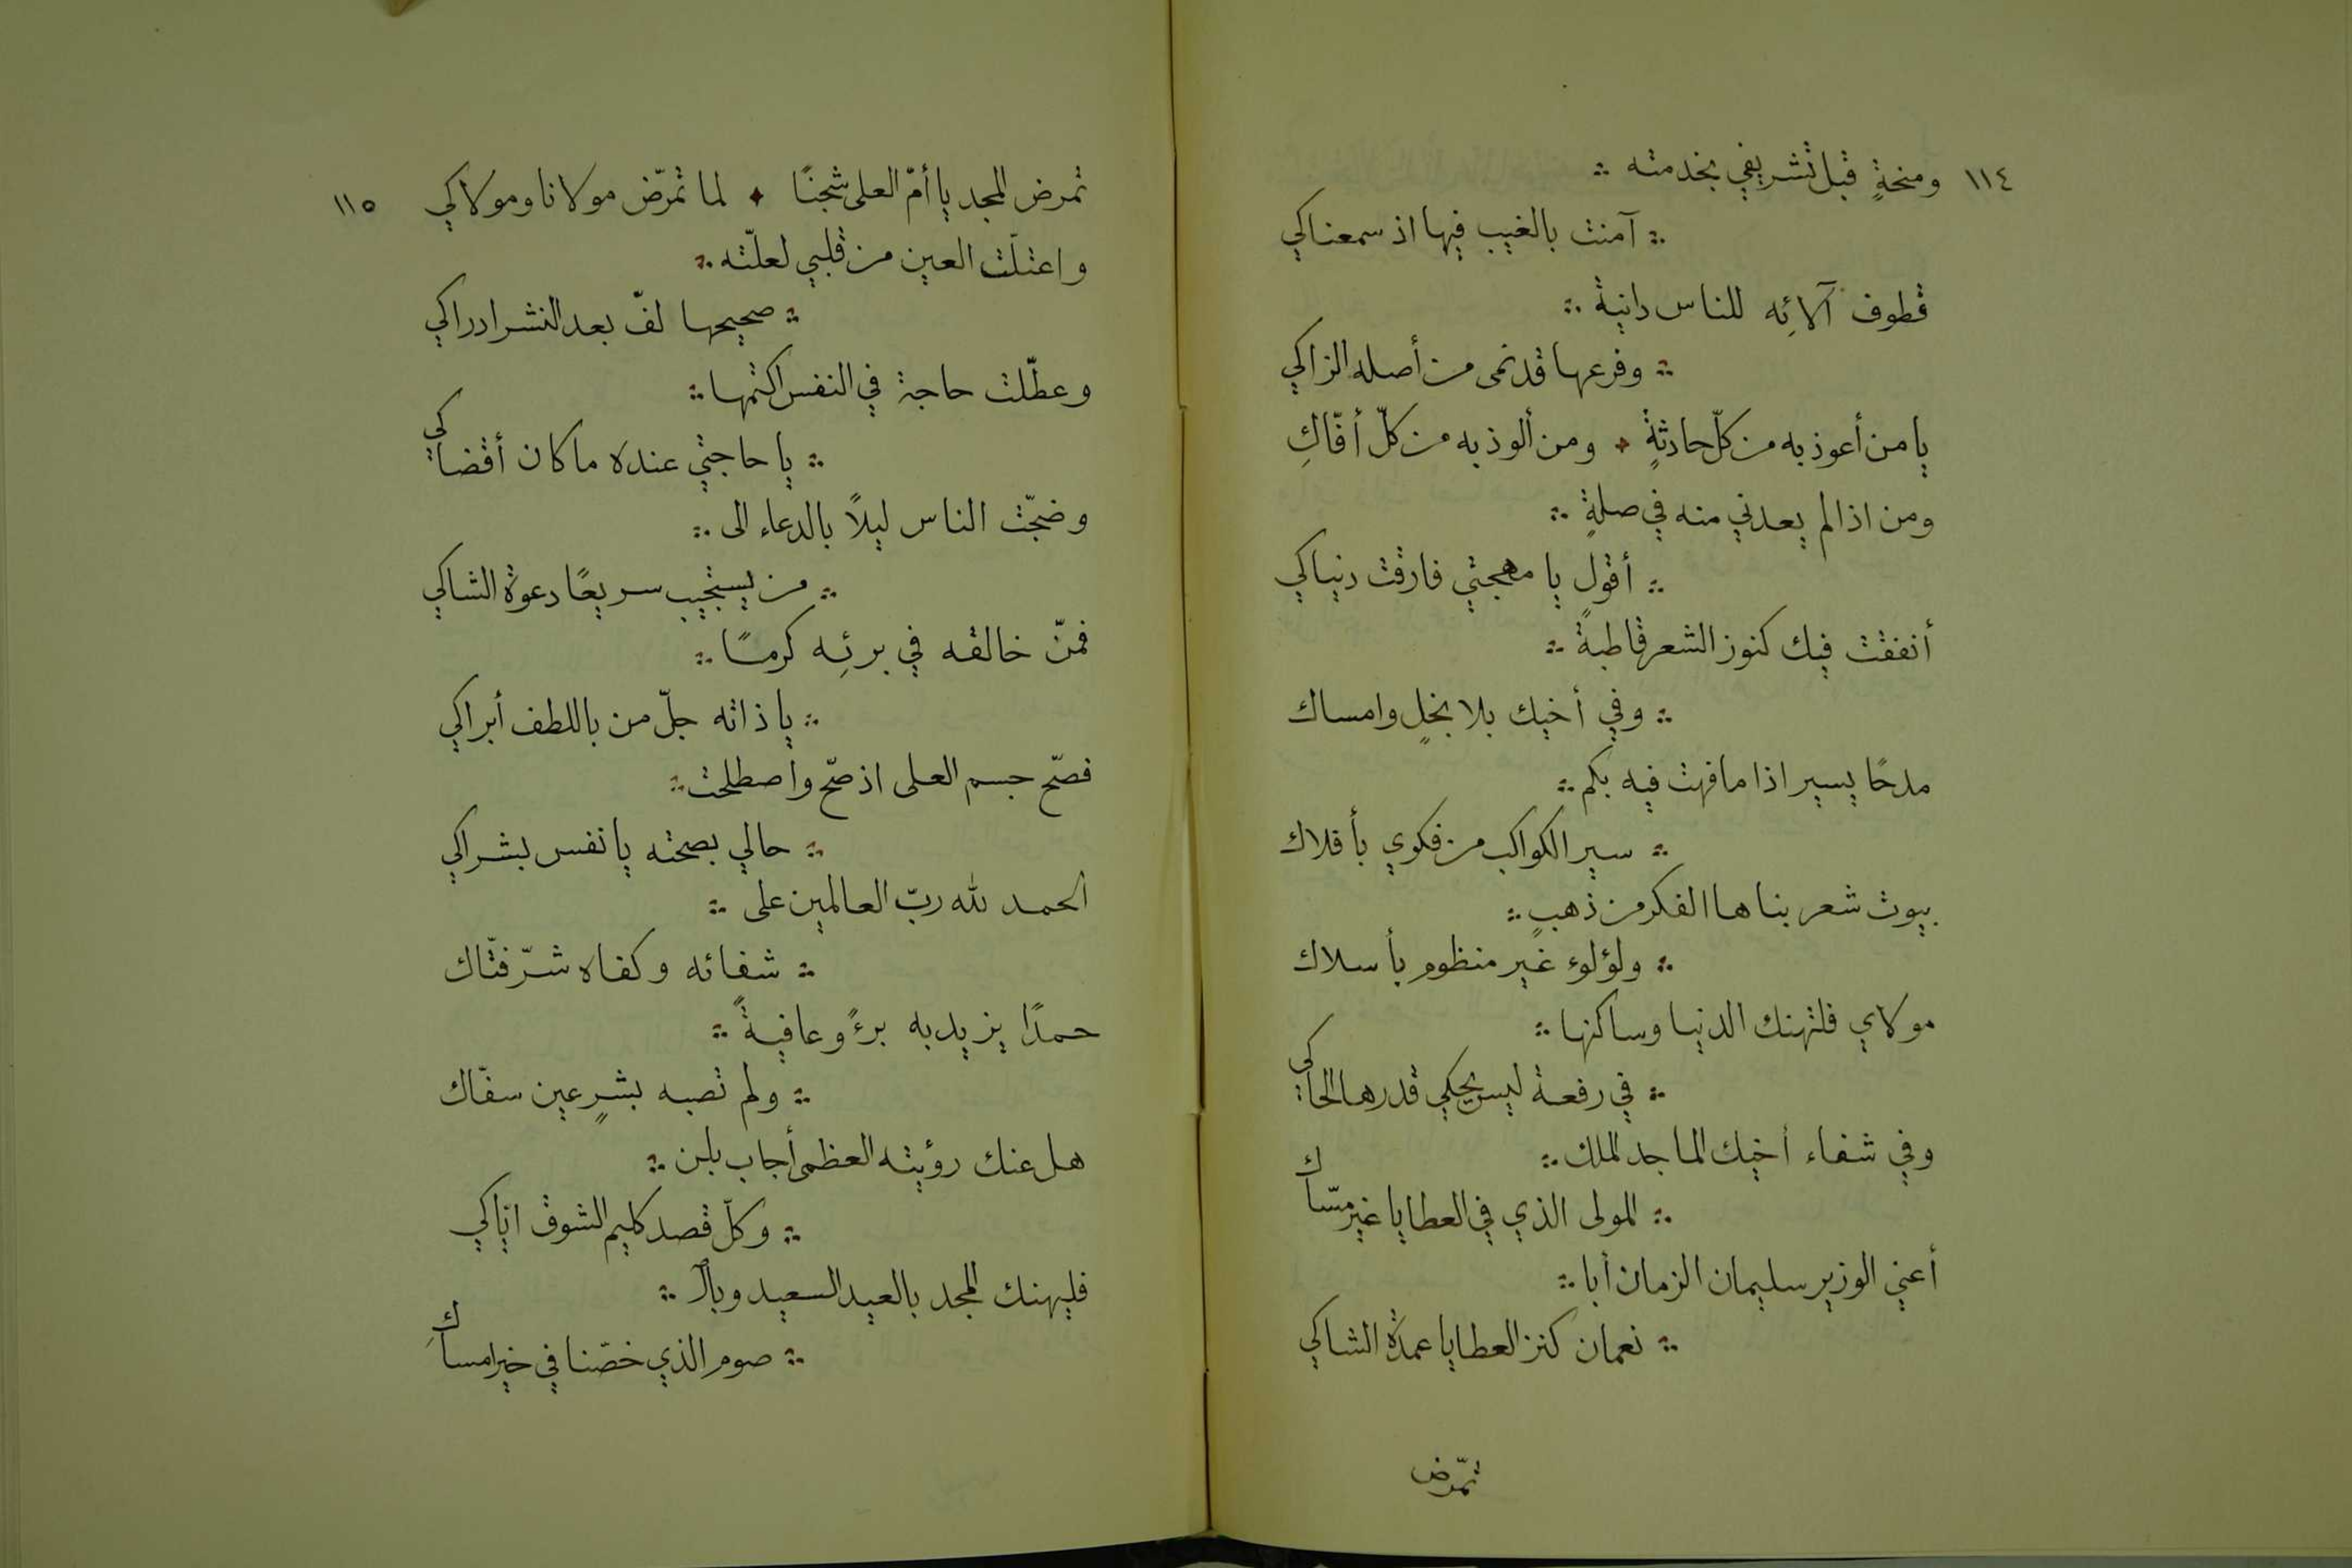 ١١٤
ومنحةٍ قبل تشريفي بخدمته ∴
∴ آمنت بالغيب فيها اذ سمعناكي
قطوف آلائِه للناس دانية ∴
∴ وفرعها قد نمى من أصله الزاكي
يا من أعوذ به من كلّ حادثةٍ ✦ ومن ألوذ به من كلّ أفّاكِ
ومن اذا لم يعدني منه في صلةٍ ∴
∴ أقول يا مهجتي فارقت دنياكي
أنفقت فيك كنوز الشعر قاطبةً ∴
∴ وفي أخيك بلا بخلٍ وامساك
مدحًا يسير اذا ما فهت فيه بكم ∴
∴ سير الكواكب من فكري بأفلاك
بيوت شعر بناها الفكر من ذهبٍ ∴
∴ ولؤلوء غير منظوم بأسلاك
مولاي فلتهنك الدنيا وساكنها ∴
∴ في رفعة ليس يحكي قدرها الحاكي
وفي شفاء أخيك الماجد الملك ∴
∴ المولى الذي في العطايا غير مسّاك
أعني الوزير سليمان الزمان أبا ∴
∴ نعمان كنز العطايا عمدة الشاكي
تمرّض
١١٥
تمرض المجد يا أمّ العلى شجنًا ✦ لما تمرّض مولانا ومولاكي
واعتلّت العين من قلبي لعلّته ∴
∴ صحيحها لفّ بعد النشر ادراكي
وعطّلت حاجة في النفس اكتمها ∴
∴ يا حاجتي عنده ما كان أقضاكي
وضجّت الناس ليلاً بالدعاء الى ∴
∴ من يستجيب سريعًا دعوة الشاكي
فمنّ خالقه في برئِه كرمًا ∴
∴ يا ذاته جلّ من باللطف أبراكي
فصّح جسم العلى اذ صّح واصطلحت ∴
∴ حالي بصحته يا نفس بشراكي
الحمد لله ربّ العالمين على ∴
∴ شفائه وكفاه شرّ فتّاك
حمدًا يزيد به برءً وعافيةً ∴
∴ ولم تصبه بشرٍ عين سفّاك
هل عنك رؤيته العظمى أجاب بلن ∴
∴ وكلّ قصد كليم الشوق اتاكي
فليهنك المجد بالعيد السعيد وبالـ ∴
∴ صوم الذي خصّنا في خير امساكِ